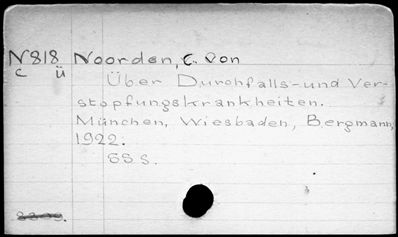 N818 Noorden, C. von
c ü
Über Durchfalls- und Ver-
stopfungskrankheiten.
München, Wiesbaden, Bergmann,
1922.
SS S.